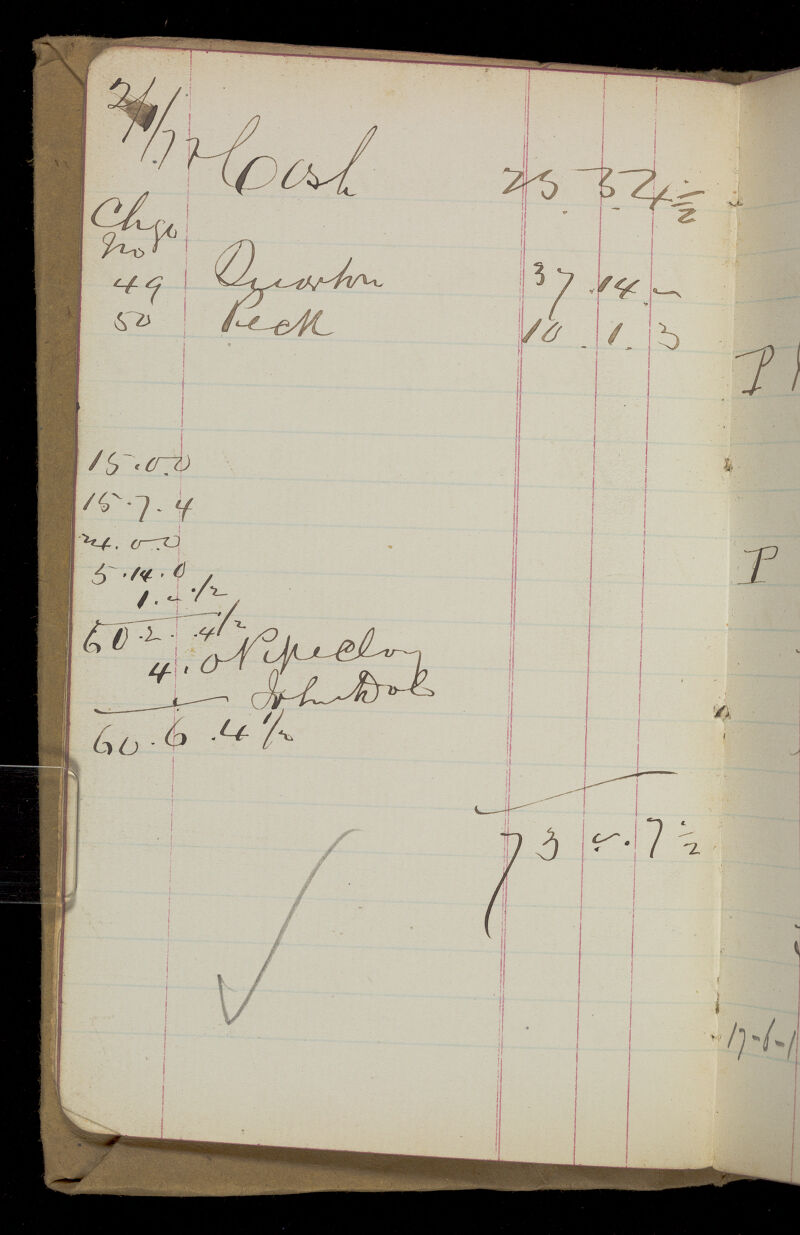 Cash 25 5 4 1/2
Chqe
No
49 Quarton 37.14.-
50 Peck 10.1.3
15.0.0
15.7.4
24.0.0
5.14.0
1.-.1/2
60.2.4 1/2
4.0 Pipeclay
60.6.4 1/2
73 -.7 1/2
P
P
17-6-1